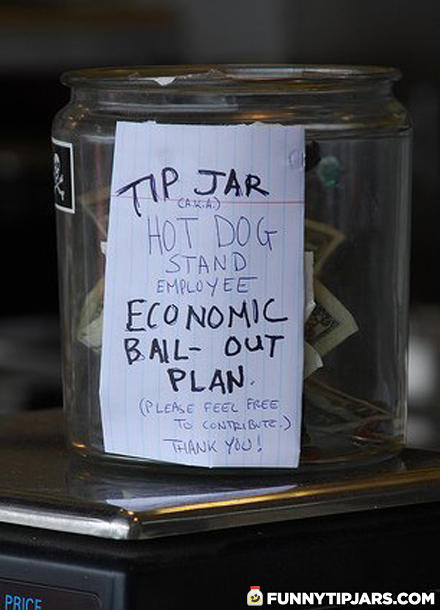 TIP JAR
(A.K.A.)
HOT DOG
STAND
EMPLOYEE
ECONOMIC
BAIL-OUT
PLAN.
(PLEASE FEEL FREE
TO CONTRIBUTE.)
THANK YOU!
PRICE
FUNNYTIPJARS.COM